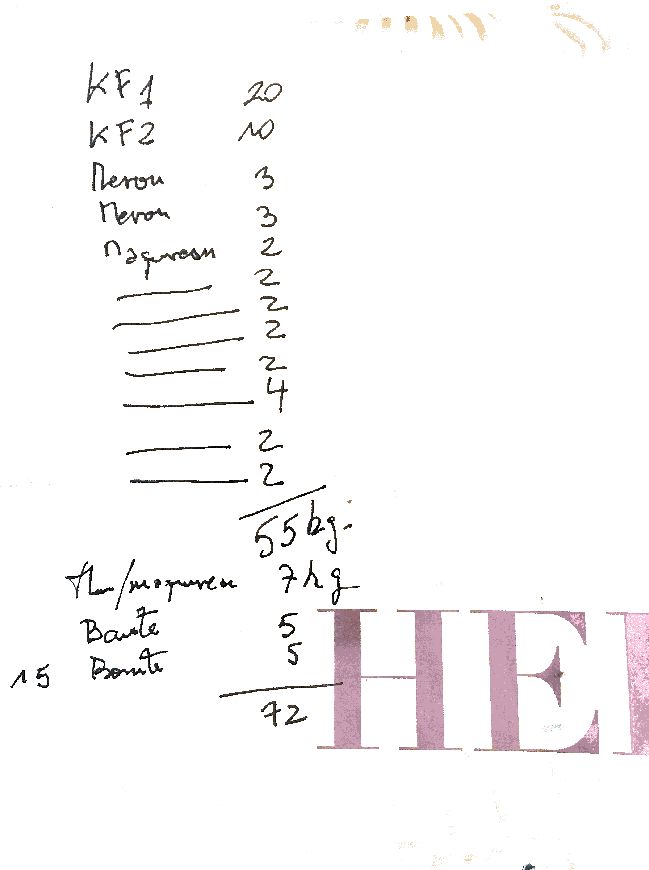 KF1 20
KF2 10
Merou 3
Merou 3
Maquereau 2
2
2
2
2
4
2
2
55 kg.
/maquereau 7 kg
Bonite 5
15 Bonite 5
72
HE